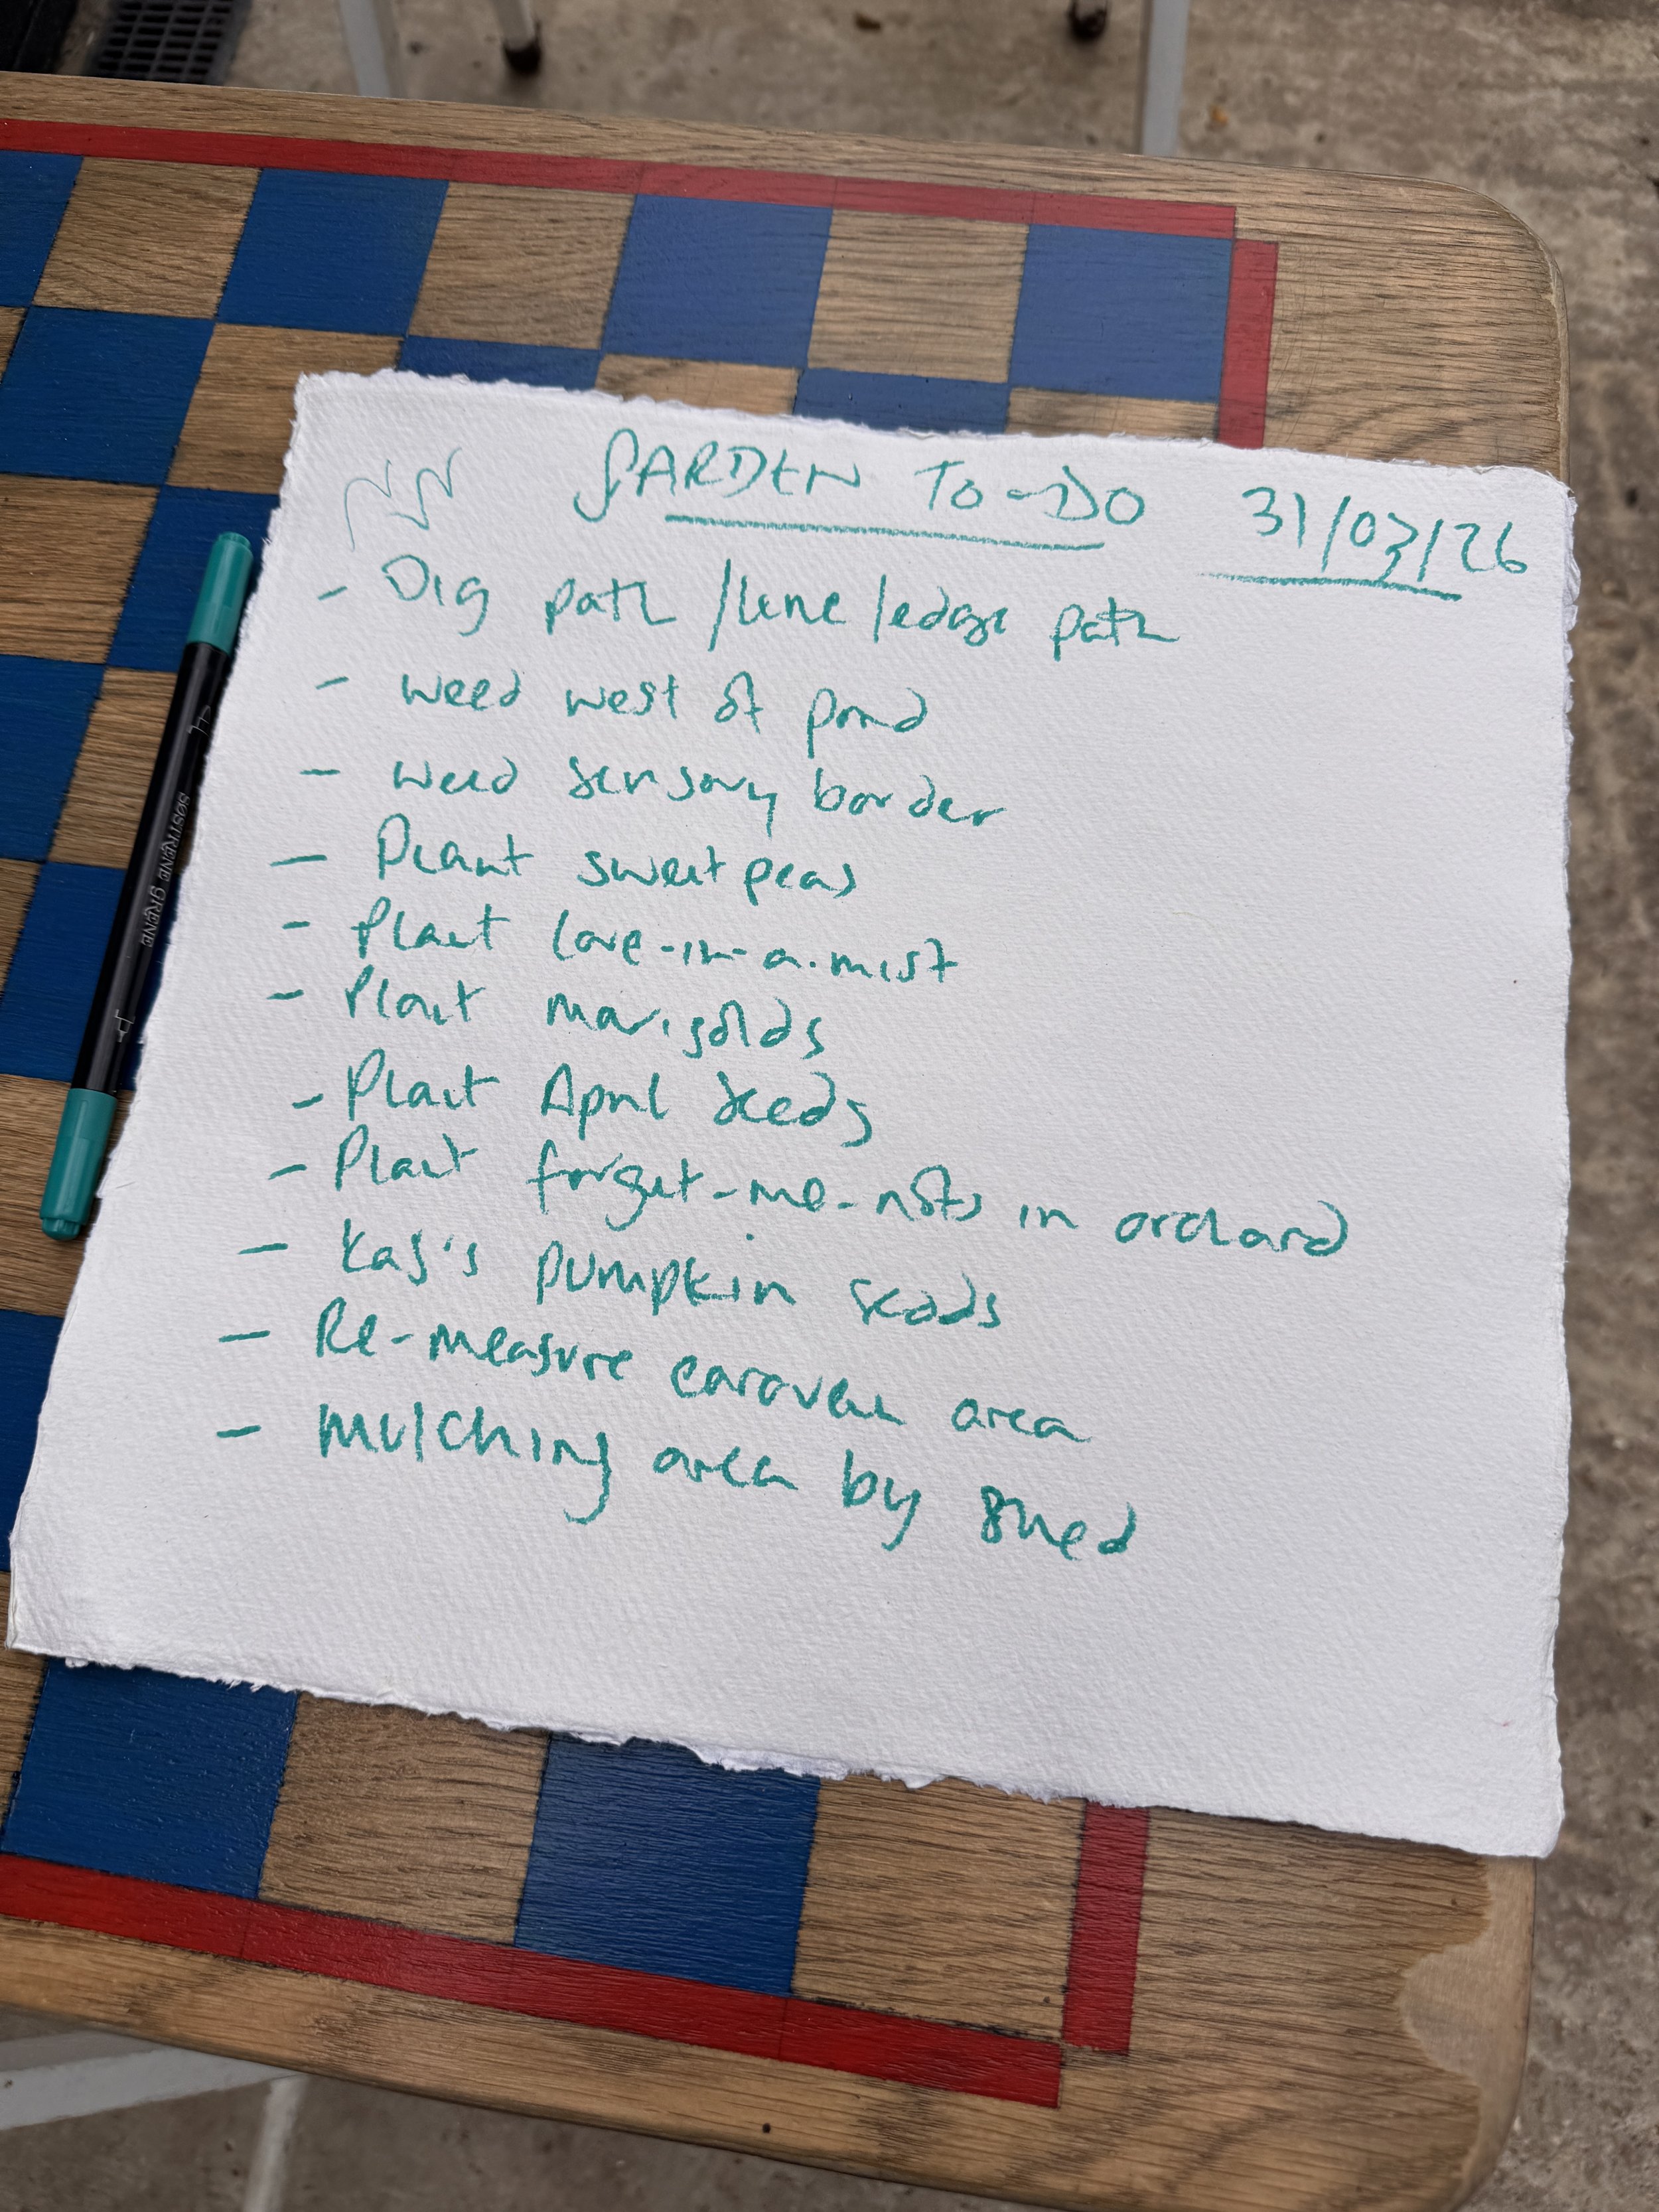 GARDEN TO-DO 31/03/26
- Dig path /line/edge path
- weed west of pond
- weed sensory border
- Plant sweet peas
- Plant love-in-a-mist
- Plant marigolds
- Plant April seeds
- Plant forget-me-nots in orchard
- Kas's pumpkin seeds
- Re-measure caravan area
- mulching area by shed
SØSTRENE GRENE